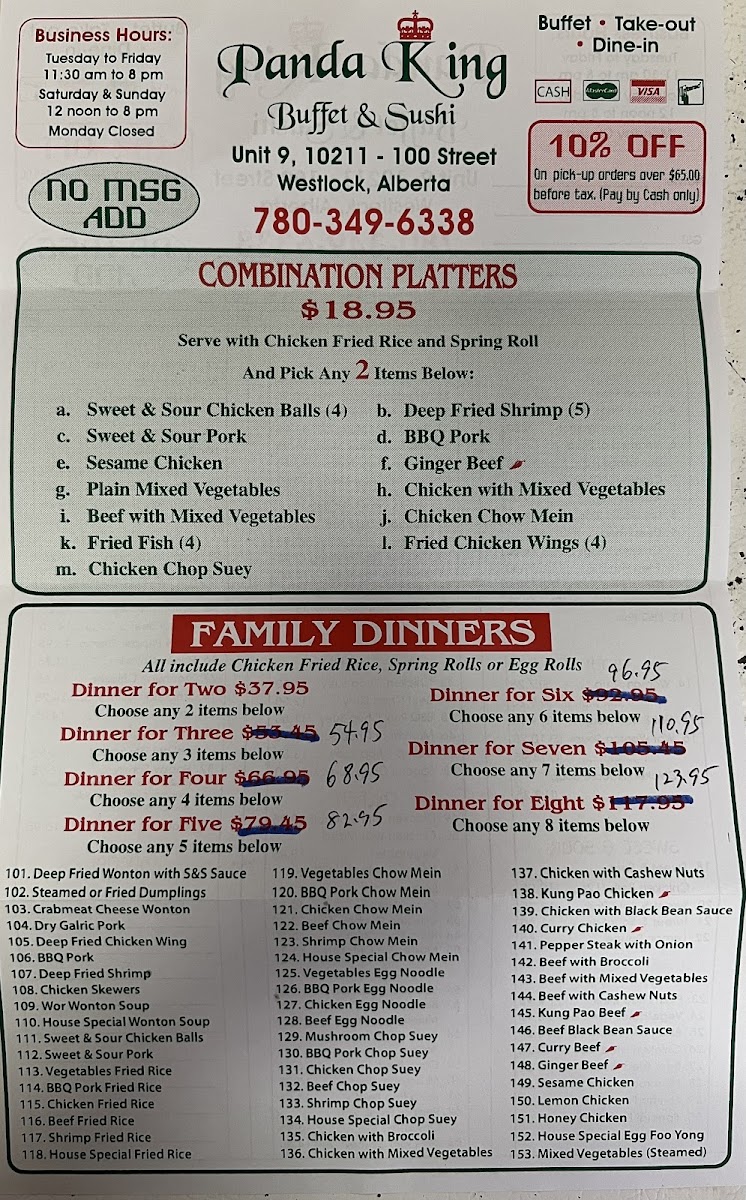 Business Hours:
Tuesday to Friday
11:30 am to 8 pm
Saturday & Sunday
12 noon to 8 pm
Monday Closed
NO MSG
ADD
Panda King
Buffet & Sushi
Unit 9, 10211 - 100 Street
Westlock, Alberta
780-349-6338
Buffet • Take-out
• Dine-in
CASH MasterCard VISA
10% OFF
On pick-up orders over $65.00
before tax. (Pay by Cash only)
COMBINATION PLATTERS
$18.95
Serve with Chicken Fried Rice and Spring Roll
And Pick Any 2 Items Below:
a. Sweet & Sour Chicken Balls (4)
b. Deep Fried Shrimp (5)
c. Sweet & Sour Pork
d. BBQ Pork
e. Sesame Chicken
f. Ginger Beef
g. Plain Mixed Vegetables
h. Chicken with Mixed Vegetables
i. Beef with Mixed Vegetables
j. Chicken Chow Mein
k. Fried Fish (4)
l. Fried Chicken Wings (4)
m. Chicken Chop Suey
FAMILY DINNERS
All include Chicken Fried Rice, Spring Rolls or Egg Rolls
Dinner for Two $37.95
Choose any 2 items below
Dinner for Three $53.45 54.95
Choose any 3 items below
Dinner for Four $66.95 68.95
Choose any 4 items below
Dinner for Five $79.45 82.95
Choose any 5 items below
96.95
Dinner for Six $92.95
Choose any 6 items below
110.95
Dinner for Seven $105.45
Choose any 7 items below
123.95
Dinner for Eight $117.95
Choose any 8 items below
101. Deep Fried Wonton with S&S Sauce
102. Steamed or Fried Dumplings
103. Crabmeat Cheese Wonton
104. Dry Galric Pork
105. Deep Fried Chicken Wing
106. BBQ Pork
107. Deep Fried Shrimp
108. Chicken Skewers
109. Wor Wonton Soup
110. House Special Wonton Soup
111. Sweet & Sour Chicken Balls
112. Sweet & Sour Pork
113. Vegetables Fried Rice
114. BBQ Pork Fried Rice
115. Chicken Fried Rice
116. Beef Fried Rice
117. Shrimp Fried Rice
118. House Special Fried Rice
119. Vegetables Chow Mein
120. BBQ Pork Chow Mein
121. Chicken Chow Mein
122. Beef Chow Mein
123. Shrimp Chow Mein
124. House Special Chow Mein
125. Vegetables Egg Noodle
126. BBQ Pork Egg Noodle
127. Chicken Egg Noodle
128. Beef Egg Noodle
129. Mushroom Chop Suey
130. BBQ Pork Chop Suey
131. Chicken Chop Suey
132. Beef Chop Suey
133. Shrimp Chop Suey
134. House Special Chop Suey
135. Chicken with Broccoli
136. Chicken with Mixed Vegetables
137. Chicken with Cashew Nuts
138. Kung Pao Chicken
139. Chicken with Black Bean Sauce
140. Curry Chicken
141. Pepper Steak with Onion
142. Beef with Broccoli
143. Beef with Mixed Vegetables
144. Beef with Cashew Nuts
145. Kung Pao Beef
146. Beef Black Bean Sauce
147. Curry Beef
148. Ginger Beef
149. Sesame Chicken
150. Lemon Chicken
151. Honey Chicken
152. House Special Egg Foo Yong
153. Mixed Vegetables (Steamed)